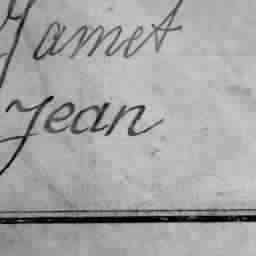 Jamet
Jean